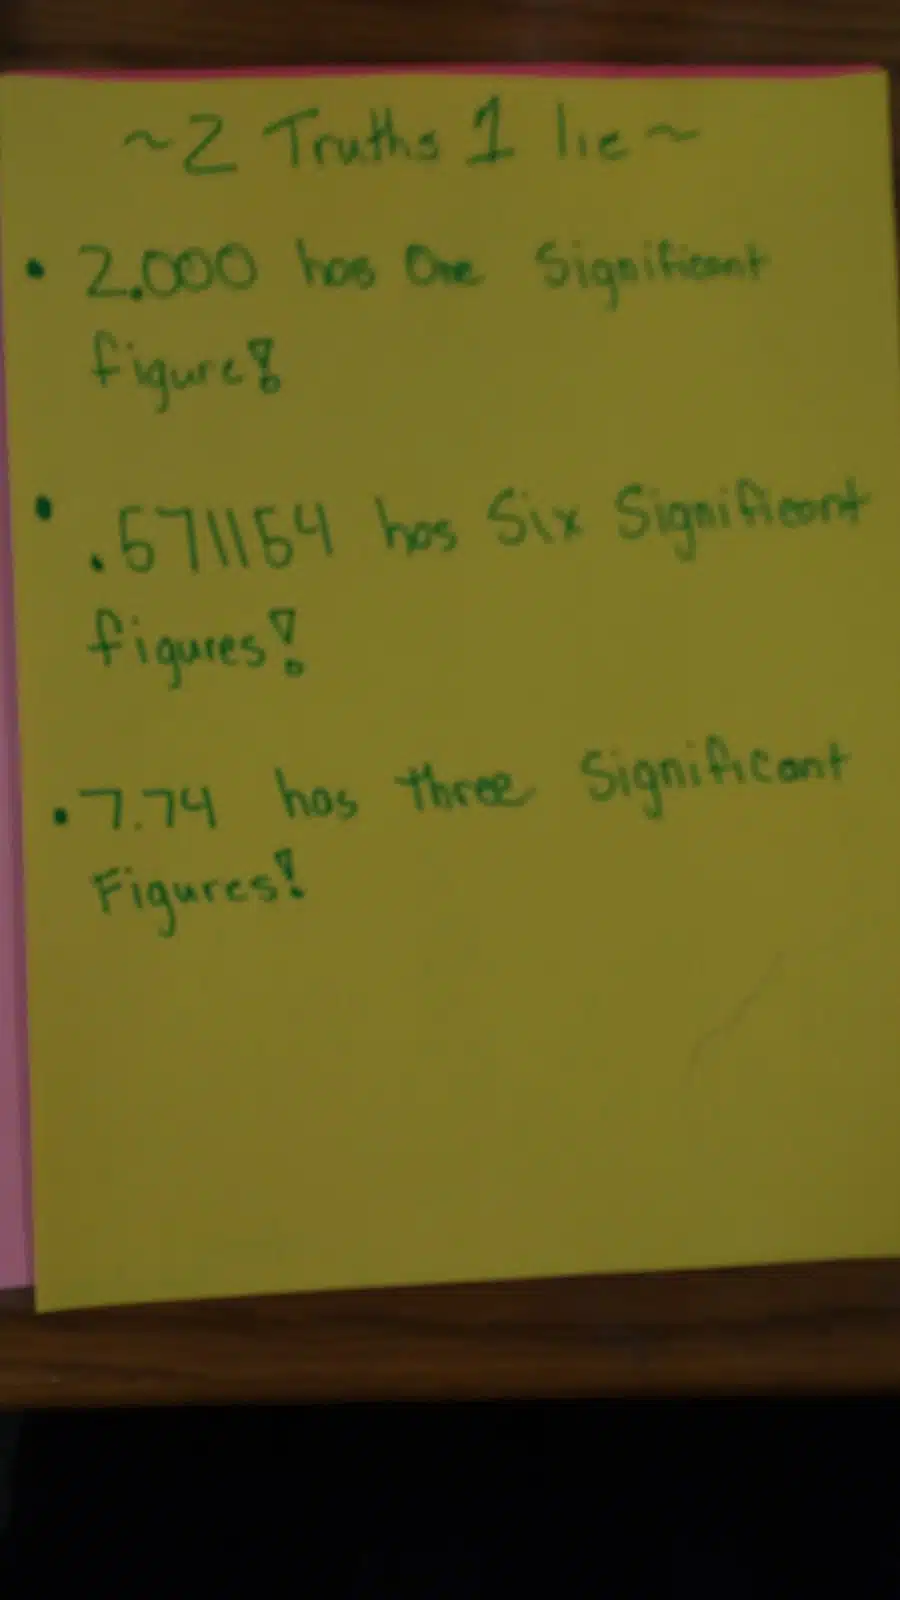 ~2 Truths 1 lie~
• 2.000 has One Significant
figure!
• .571154 has Six Significant
figures!
• 7.74 has three Significant
Figures!